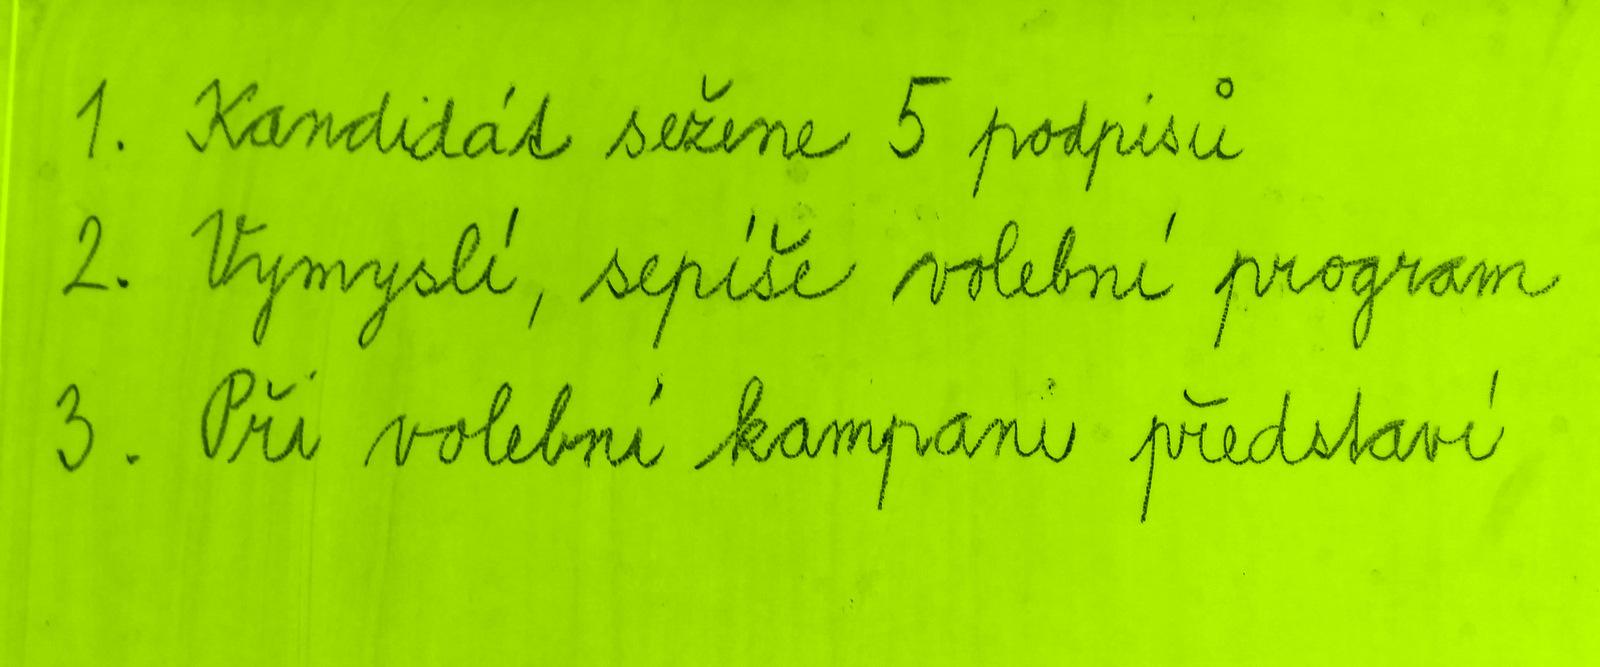 1. Kandidát sežene 5 podpisů
2. Vymyslí, sepíše volební program
3. Při volební kampani představí